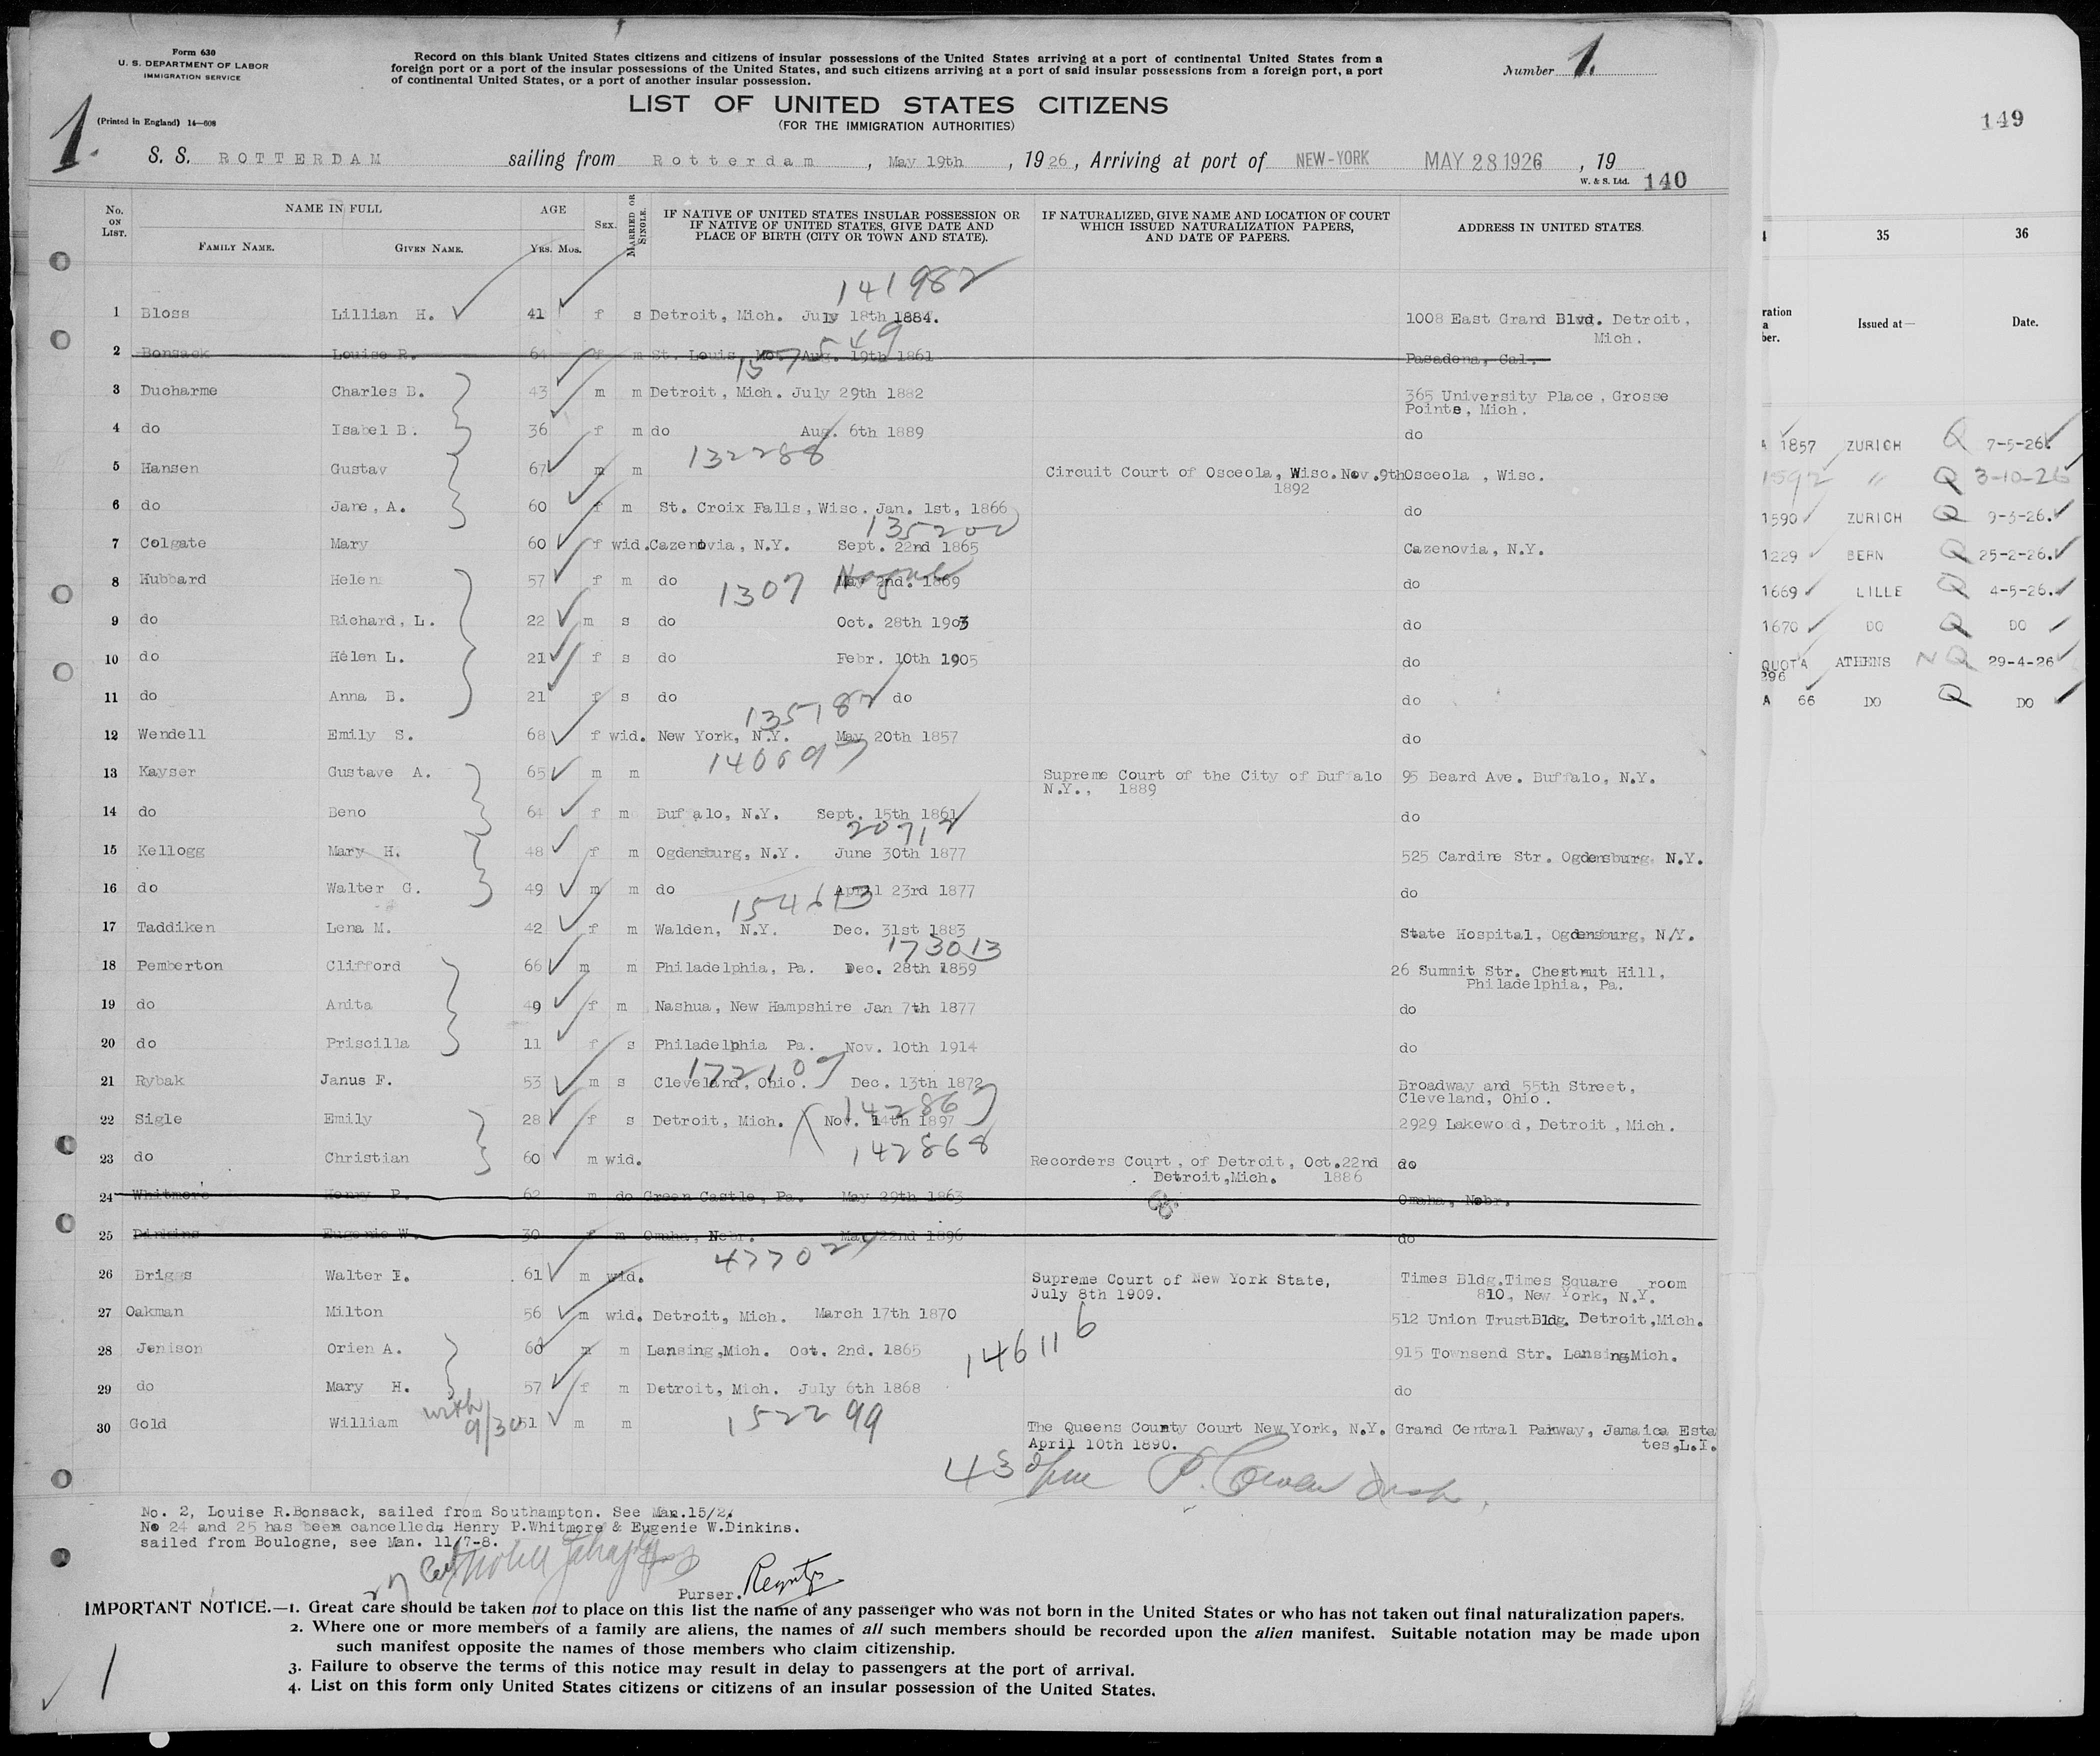 Form 630
U. S. DEPARTMENT OF LABOR
IMMIGRATION SERVICE
Record on this blank United States citizens and citizens of insular possessions of the United States arriving at a port of continental United States from a
foreign port or a port of the insular possessions of the United States, and such citizens arriving at a port of said insular possessions from a foreign port, a port
of continental United States, or a port of another insular possession.
Number 1.
LIST OF UNITED STATES CITIZENS
(FOR THE IMMIGRATION AUTHORITIES)
(Printed in England) 14—608
1.
149
S. S. ROTTERDAM sailing from Rotterdam, May 19th, 1926, Arriving at port of NEW-YORK MAY 28 1926, 19
W. & S. Ltd. 140
No. ON LIST. NAME IN FULL FAMILY NAME. GIVEN NAME. AGE YRS. MOS. SEX. MARRIED OR SINGLE. IF NATIVE OF UNITED STATES INSULAR POSSESSION OR IF NATIVE OF UNITED STATES, GIVE DATE AND PLACE OF BIRTH (CITY OR TOWN AND STATE). IF NATURALIZED, GIVE NAME AND LOCATION OF COURT WHICH ISSUED NATURALIZATION PAPERS, AND DATE OF PAPERS. ADDRESS IN UNITED STATES.
141982
1 Bloss Lillian H. 41 f s Detroit, Mich. July 18th 1884. 1008 East Grand Blvd. Detroit, Mich.
2 Bonsack Louise R. 64 f m St. Louis, Mo. Aug. 19th 1861 Pasadena, Cal.
157549
3 Ducharme Charles B. 43 m m Detroit, Mich. July 29th 1882 365 University Place, Grosse Pointe, Mich.
4 do Isabel B. 36 f m do Aug. 6th 1889 do
132288
5 Hansen Gustav 67 m m Circuit Court of Osceola, Wisc. Nov. 9th 1892 Osceola, Wisc.
6 do Jane, A. 60 f m St. Croix Falls, Wisc. Jan. 1st, 1866 do
7 Colgate Mary 60 f wid. Cazenovia, N.Y. Sept. 22nd 1865 Cazenovia, N.Y.
8 Hubbard Helen 57 f m do May 2nd. 1869 do
9 do Richard, L. 22 m s do Oct. 28th 1903 do
10 do Helen L. 21 f s do Febr. 10th 1905 do
11 do Anna B. 21 f s do do do
135182
12 Wendell Emily S. 68 f wid. New York, N.Y. May 20th 1857 do
13 Kayser Gustave A. 65 m m Supreme Court of the City of Buffalo N.Y., 1889 95 Beard Ave. Buffalo, N.Y.
14 do Beno 64 f m Buffalo, N.Y. Sept. 15th 1861 do
20712
15 Kellogg Mary H. 48 f m Ogdensburg, N.Y. June 30th 1877 525 Cardine Str. Ogdensburg N.Y.
16 do Walter G. 49 m m do April 23rd 1877 do
17 Taddiken Lena M. 42 f m Walden, N.Y. Dec. 31st 1883 State Hospital, Ogdensburg, N/Y.
173013
18 Pemberton Clifford 66 m m Philadelphia, Pa. Dec. 28th 1859 26 Summit Str. Chestnut Hill, Philadelphia, Pa.
19 do Anita 49 f m Nashua, New Hampshire Jan 7th 1877 do
20 do Priscilla 11 f s Philadelphia Pa. Nov. 10th 1914 do
172107
21 Rybak Janus F. 53 m s Cleveland, Ohio. Dec. 13th 1872 Broadway and 55th Street, Cleveland, Ohio.
142867
22 Sigle Emily 28 f s Detroit, Mich. Nov. 14th 1897 2929 Lakewood, Detroit, Mich.
142868
23 do Christian 60 m wid. Recorders Court, of Detroit, Oct. 22nd Detroit, Mich. 1886 do
24 Whitmore Henry P. 62 m do Green Castle, Pa. May 29th 1863 Omaha, Nebr.
25 Dinkins Eugenie W. 30 f m Omaha, Nebr. May 22nd 1896 do
26 Briggs Walter I. 61 m wid. Supreme Court of New York State, July 8th 1909. Times Bldg. Times Square room 810, New York, N.Y.
27 Oakman Milton 56 m wid. Detroit, Mich. March 17th 1870 512 Union Trust Bldg. Detroit, Mich.
28 Jenison Orien A. 60 m m Lansing, Mich. Oct. 2nd. 1865 915 Townsend Str. Lansing Mich.
146116
29 do Mary H. 57 f m Detroit, Mich. July 6th 1868 do
152299
30 Gold William with 9/30 51 m m The Queens County Court New York, N.Y. April 10th 1890. Grand Central Parkway, Jamaica Estates, L.I.
No. 2, Louise R. Bonsack, sailed from Southampton. See Man. 15/2.
No 24 and 25 has been cancelled, Henry P. Whitmore & Eugenie W. Dinkins.
sailed from Boulogne, see Man. 11/7-8.
Purser.
IMPORTANT NOTICE.—1. Great care should be taken not to place on this list the name of any passenger who was not born in the United States or who has not taken out final naturalization papers.
2. Where one or more members of a family are aliens, the names of all such members should be recorded upon the alien manifest. Suitable notation may be made upon
such manifest opposite the names of those members who claim citizenship.
3. Failure to observe the terms of this notice may result in delay to passengers at the port of arrival.
4. List on this form only United States citizens or citizens of an insular possession of the United States.
1
35 36
Issued at— Date.
1857 ZURICH Q 7-5-26.
1592 " Q 3-10-26
1590 ZURICH Q 9-3-26.
1229 BERN Q 25-2-26.
1669 LILLE Q 4-5-26.
1670 DO Q DO
QUOTA 296 ATHENS NQ 29-4-26
A 66 DO Q DO